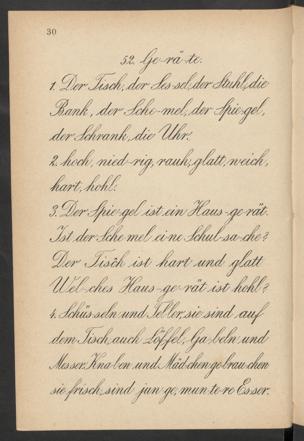 30
52. Ge-rä-te.
1. Der Tisch, der Ses-sel, der Stuhl, die
Bank, der Sche-mel, der Spie-gel,
der Schrank, die Uhr.
2. hoch, nied-rig, rauh, glatt, weich,
hart, hohl.
3. Der Spie-gel ist ein Haus-ge-rät.
Ist der Sche-mel ei-ne Schul-sa-che?
Der Tisch ist hart und glatt
Wel-ches Haus-ge-rät ist hohl?
4. Schüs-seln und Tel-ler, sie sind auf
dem Tisch, auch Löf-fel, Ga-beln und
Messer. Kna-ben und Mäd-chen ge-brau-chen
sie frisch, sind jun-ge, mun-te-re Es-ser.